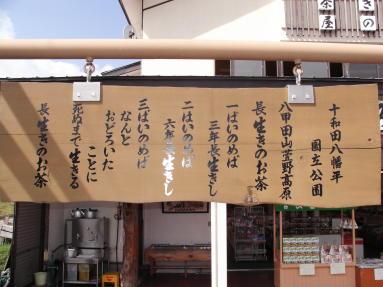 十和田八幡平
国立公園
八甲田山萱野高原
長生きのお茶
一ぱいのめば
三年長生きし
二はいのめば
六年長生きし
三ばいのめば
なんと
おどろいた
ことに
死ぬまで生きる
長生きのお茶
きの
茶屋